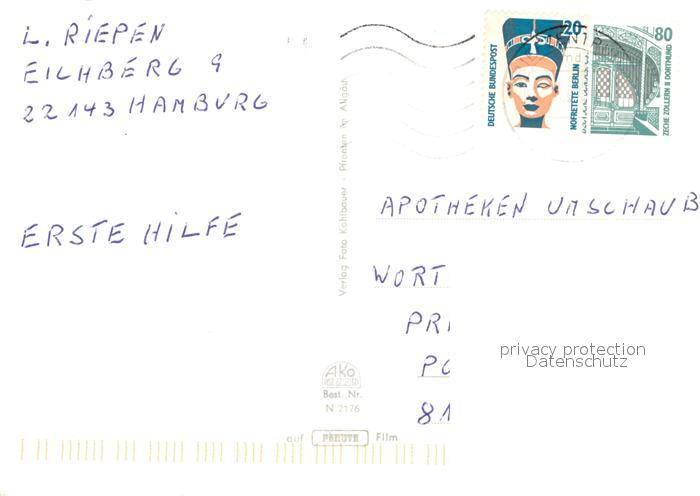 L. RIEPEN
EICHBERG 9
22143 HAMBURG
ERSTE HILFE
Verlag Foto Kohlbauer · Pfronten im Allgäu
AKo
Best. Nr.
N 2176
auf PERUTZ Film
DEUTSCHE BUNDESPOST
20
NOFRETETE BERLIN
80
ZECHE ZOLLERN II DORTMUND
APOTHEKEN UMSCHAU B
WORT
PRI
PO
81
privacy protection
Datenschutz